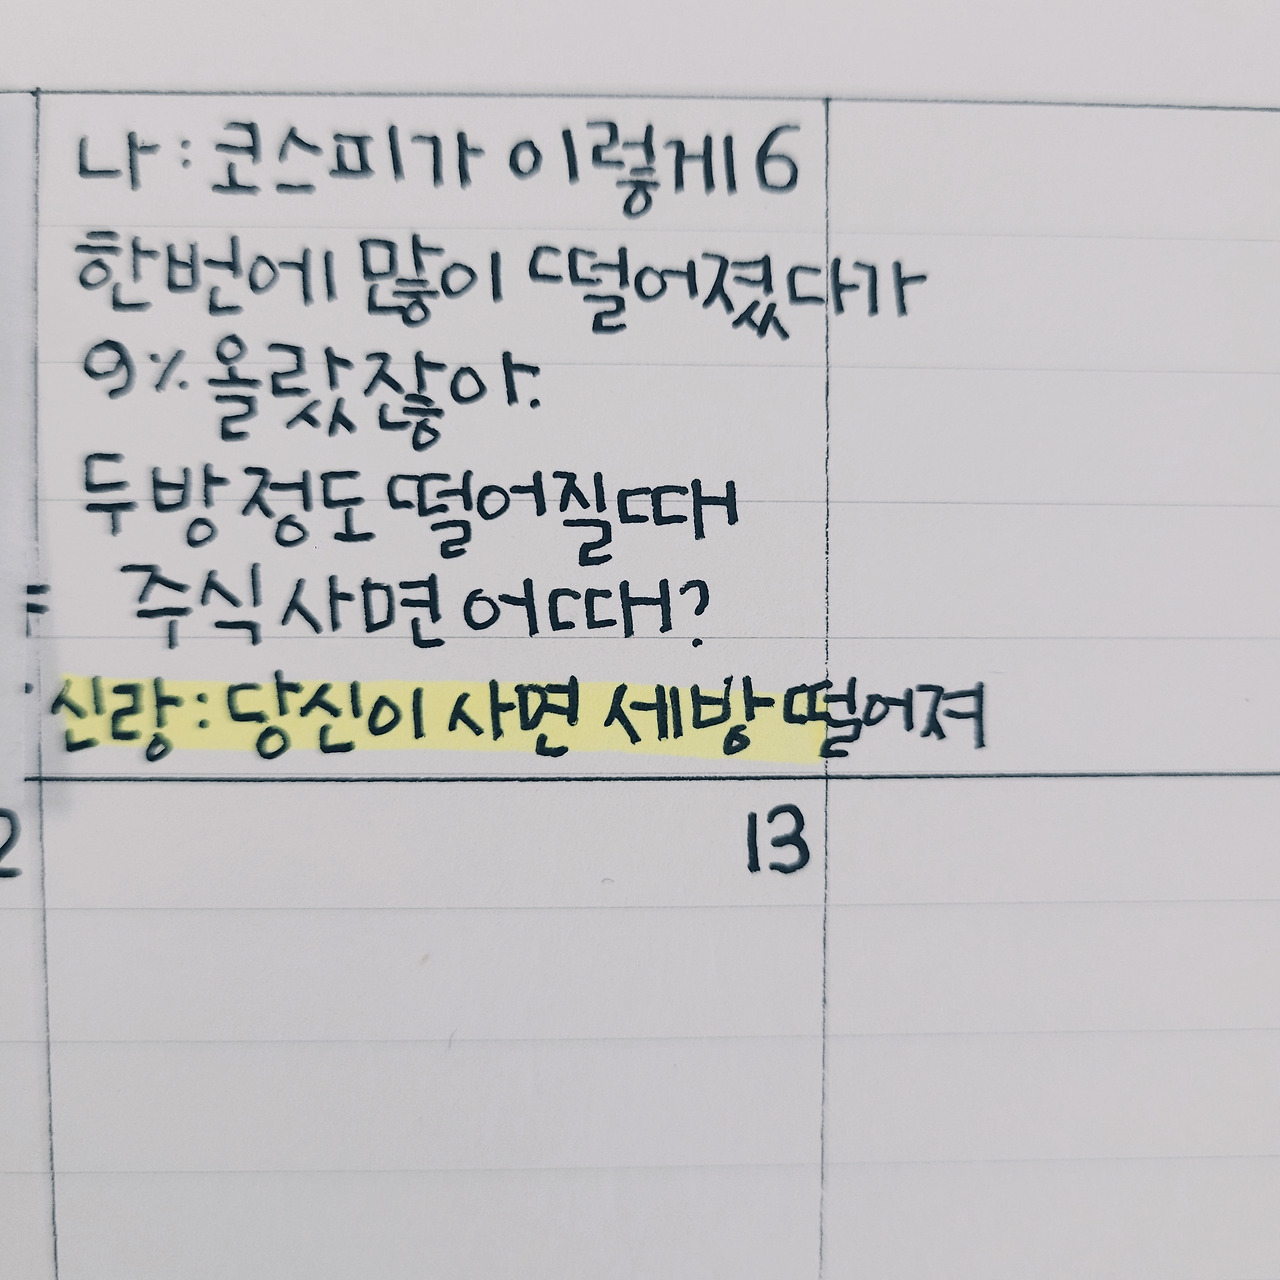 나 : 코스피가 이렇게 6
한번에 많이 떨어졌다가
9% 올랐잖아.
두방정도 떨어질때
주식사면 어때?
신랑 : 당신이 사면 세방 떨어져
2 13